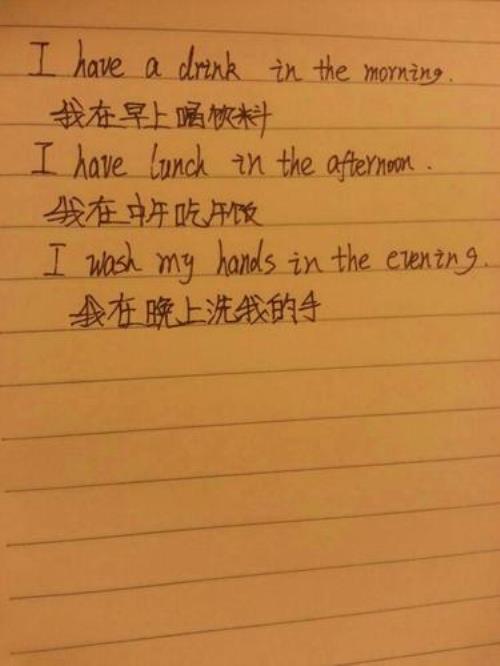 I have a drink in the morning.
我在早上喝饮料
I have lunch in the afternoon.
我在中午吃午饭
I wash my hands in the evening.
我在晚上洗我的手